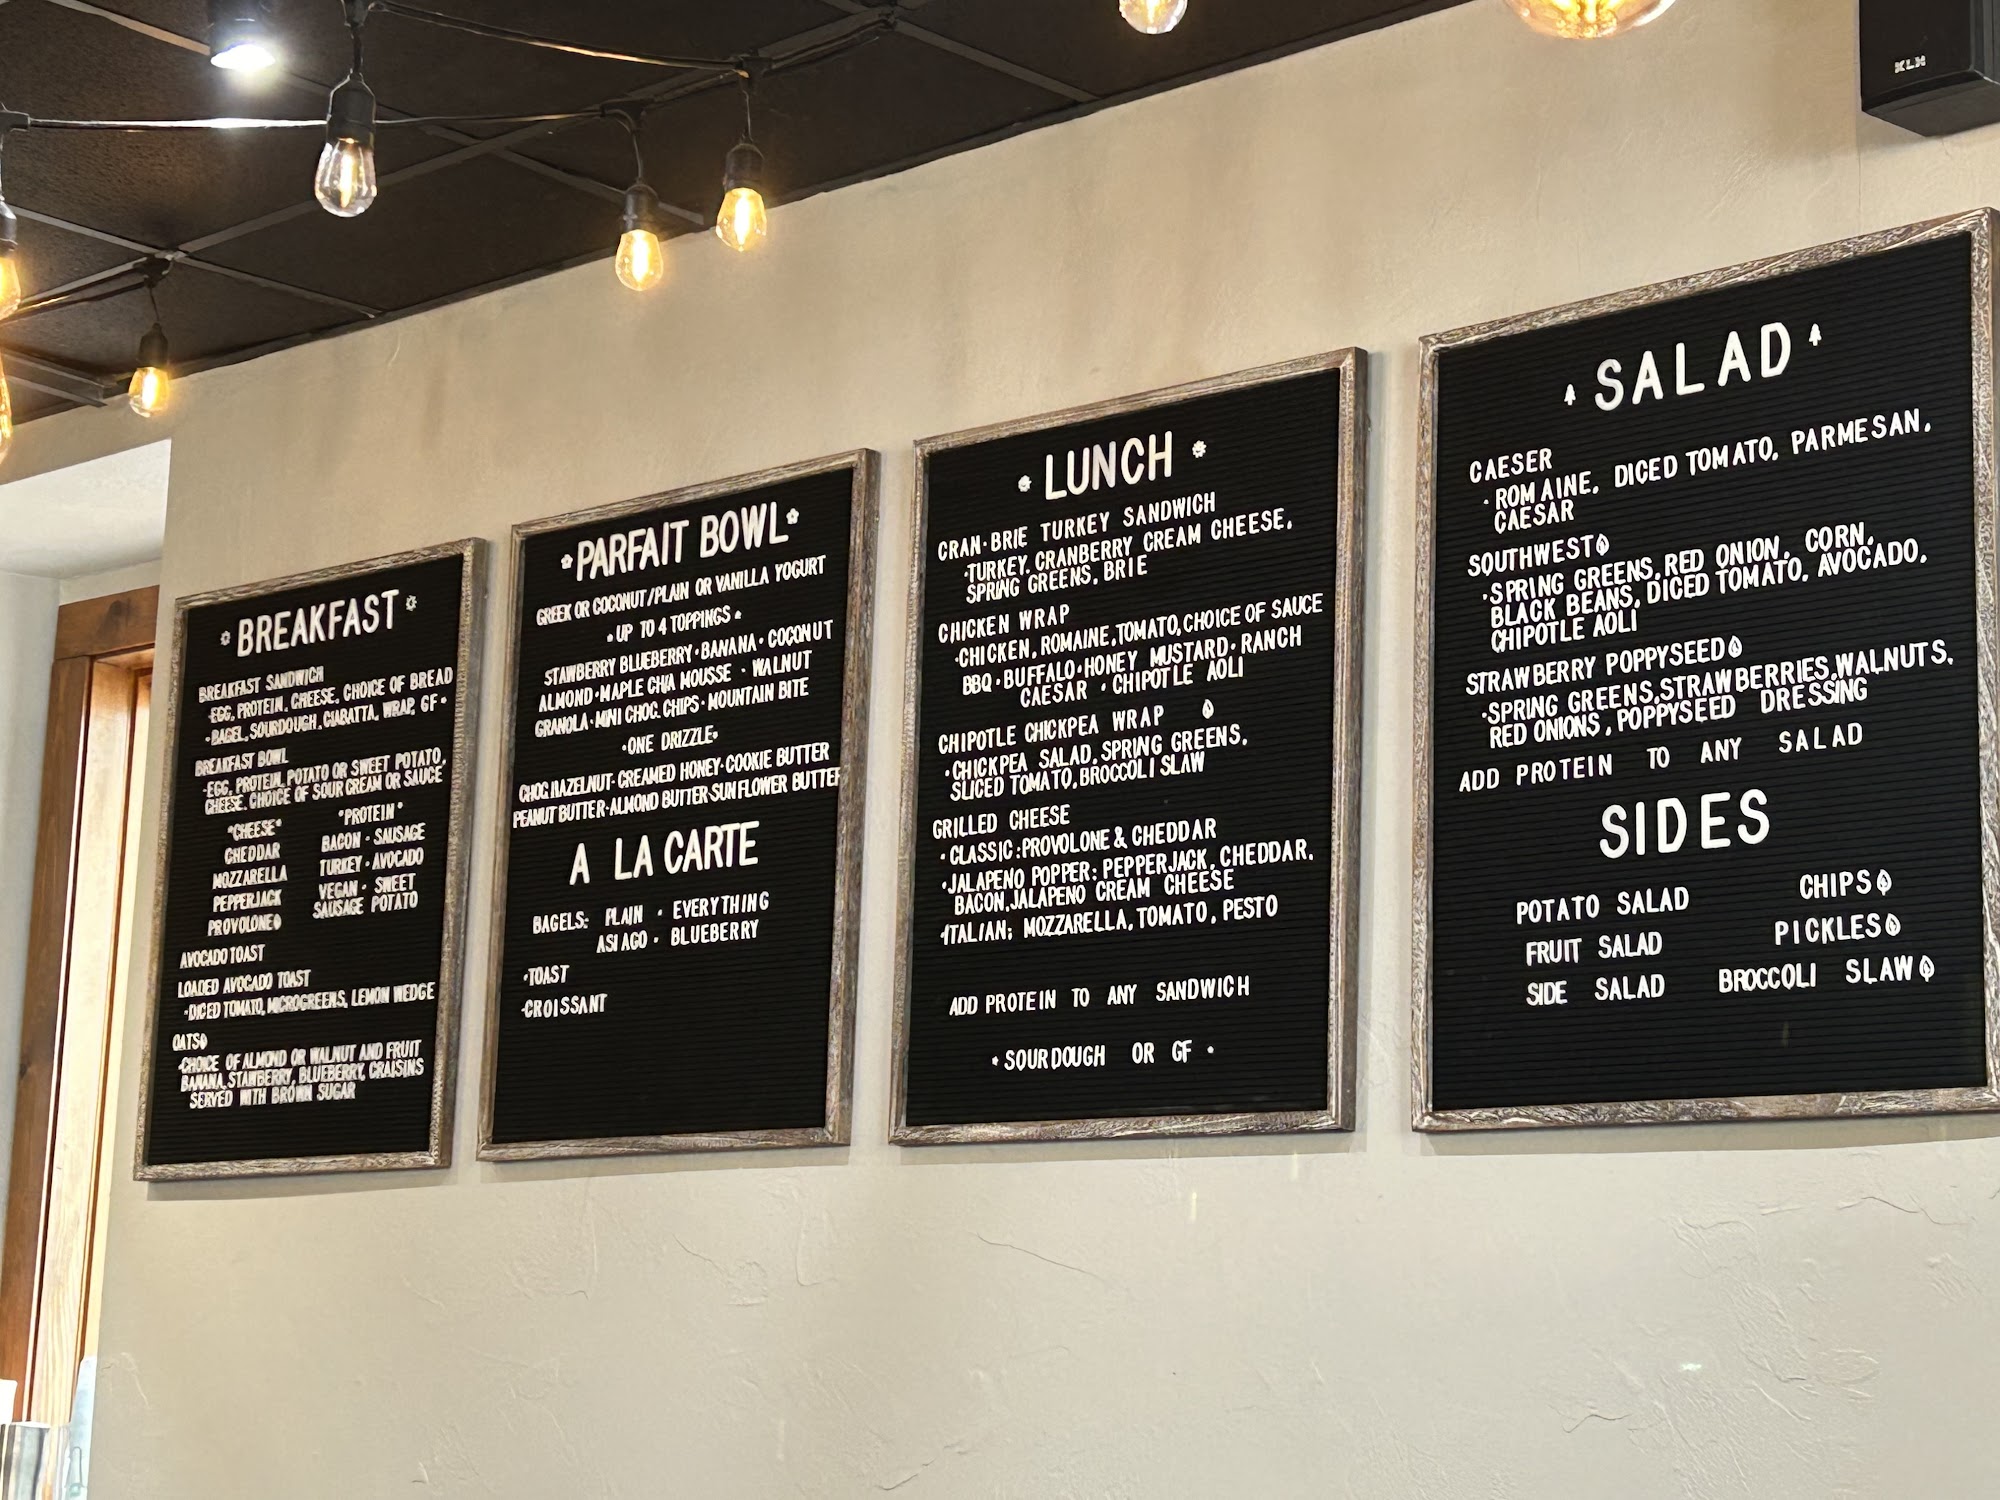 KLH
BREAKFAST
BREAKFAST SANDWICH
·EGG, PROTEIN, CHEESE, CHOICE OF BREAD
·BAGEL, SOURDOUGH, CIABATTA, WRAP, GF·
BREAKFAST BOWL
·EGG, PROTEIN, POTATO OR SWEET POTATO,
CHEESE, CHOICE OF SOUR CREAM OR SAUCE
"CHEESE" "PROTEIN"
CHEDDAR BACON · SAUSAGE
MOZZARELLA TURKEY · AVOCADO
PEPPERJACK VEGAN · SWEET
PROVOLONE SAUSAGE POTATO
AVOCADO TOAST
LOADED AVOCADO TOAST
·DICED TOMATO, MICROGREENS, LEMON WEDGE
OATS
·CHOICE OF ALMOND OR WALNUT AND FRUIT
BANANA, STAWBERRY, BLUEBERRY, CRAISINS
SERVED WITH BROWN SUGAR
PARFAIT BOWL
GREEK OR COCONUT/PLAIN OR VANILLA YOGURT
· UP TO 4 TOPPINGS ·
STAWBERRY BLUEBERRY · BANANA · COCONUT
ALMOND · MAPLE CHIA MOUSSE · WALNUT
GRANOLA · MINI CHOC. CHIPS · MOUNTAIN BITE
·ONE DRIZZLE·
CHOC HAZELNUT · CREAMED HONEY · COOKIE BUTTER
PEANUT BUTTER · ALMOND BUTTER SUNFLOWER BUTTER
A LA CARTE
BAGELS: PLAIN · EVERYTHING
ASIAGO · BLUEBERRY
·TOAST
·CROISSANT
LUNCH
CRAN·BRIE TURKEY SANDWICH
·TURKEY, CRANBERRY CREAM CHEESE,
SPRING GREENS, BRIE
CHICKEN WRAP
·CHICKEN, ROMAINE, TOMATO, CHOICE OF SAUCE
BBQ · BUFFALO · HONEY MUSTARD · RANCH
CAESAR · CHIPOTLE AOLI
CHIPOTLE CHICKPEA WRAP
·CHICKPEA SALAD, SPRING GREENS,
SLICED TOMATO, BROCCOLI SLAW
GRILLED CHEESE
·CLASSIC: PROVOLONE & CHEDDAR
·JALAPENO POPPER: PEPPERJACK, CHEDDAR,
BACON, JALAPENO CREAM CHEESE
·ITALIAN: MOZZARELLA, TOMATO, PESTO
ADD PROTEIN TO ANY SANDWICH
· SOURDOUGH OR GF ·
SALAD
CAESER
·ROMAINE, DICED TOMATO, PARMESAN,
CAESAR
SOUTHWEST
·SPRING GREENS, RED ONION, CORN,
BLACK BEANS, DICED TOMATO, AVOCADO,
CHIPOTLE AOLI
STRAWBERRY POPPYSEED
·SPRING GREENS, STRAWBERRIES, WALNUTS,
RED ONIONS, POPPYSEED DRESSING
ADD PROTEIN TO ANY SALAD
SIDES
POTATO SALAD CHIPS
FRUIT SALAD PICKLES
SIDE SALAD BROCCOLI SLAW